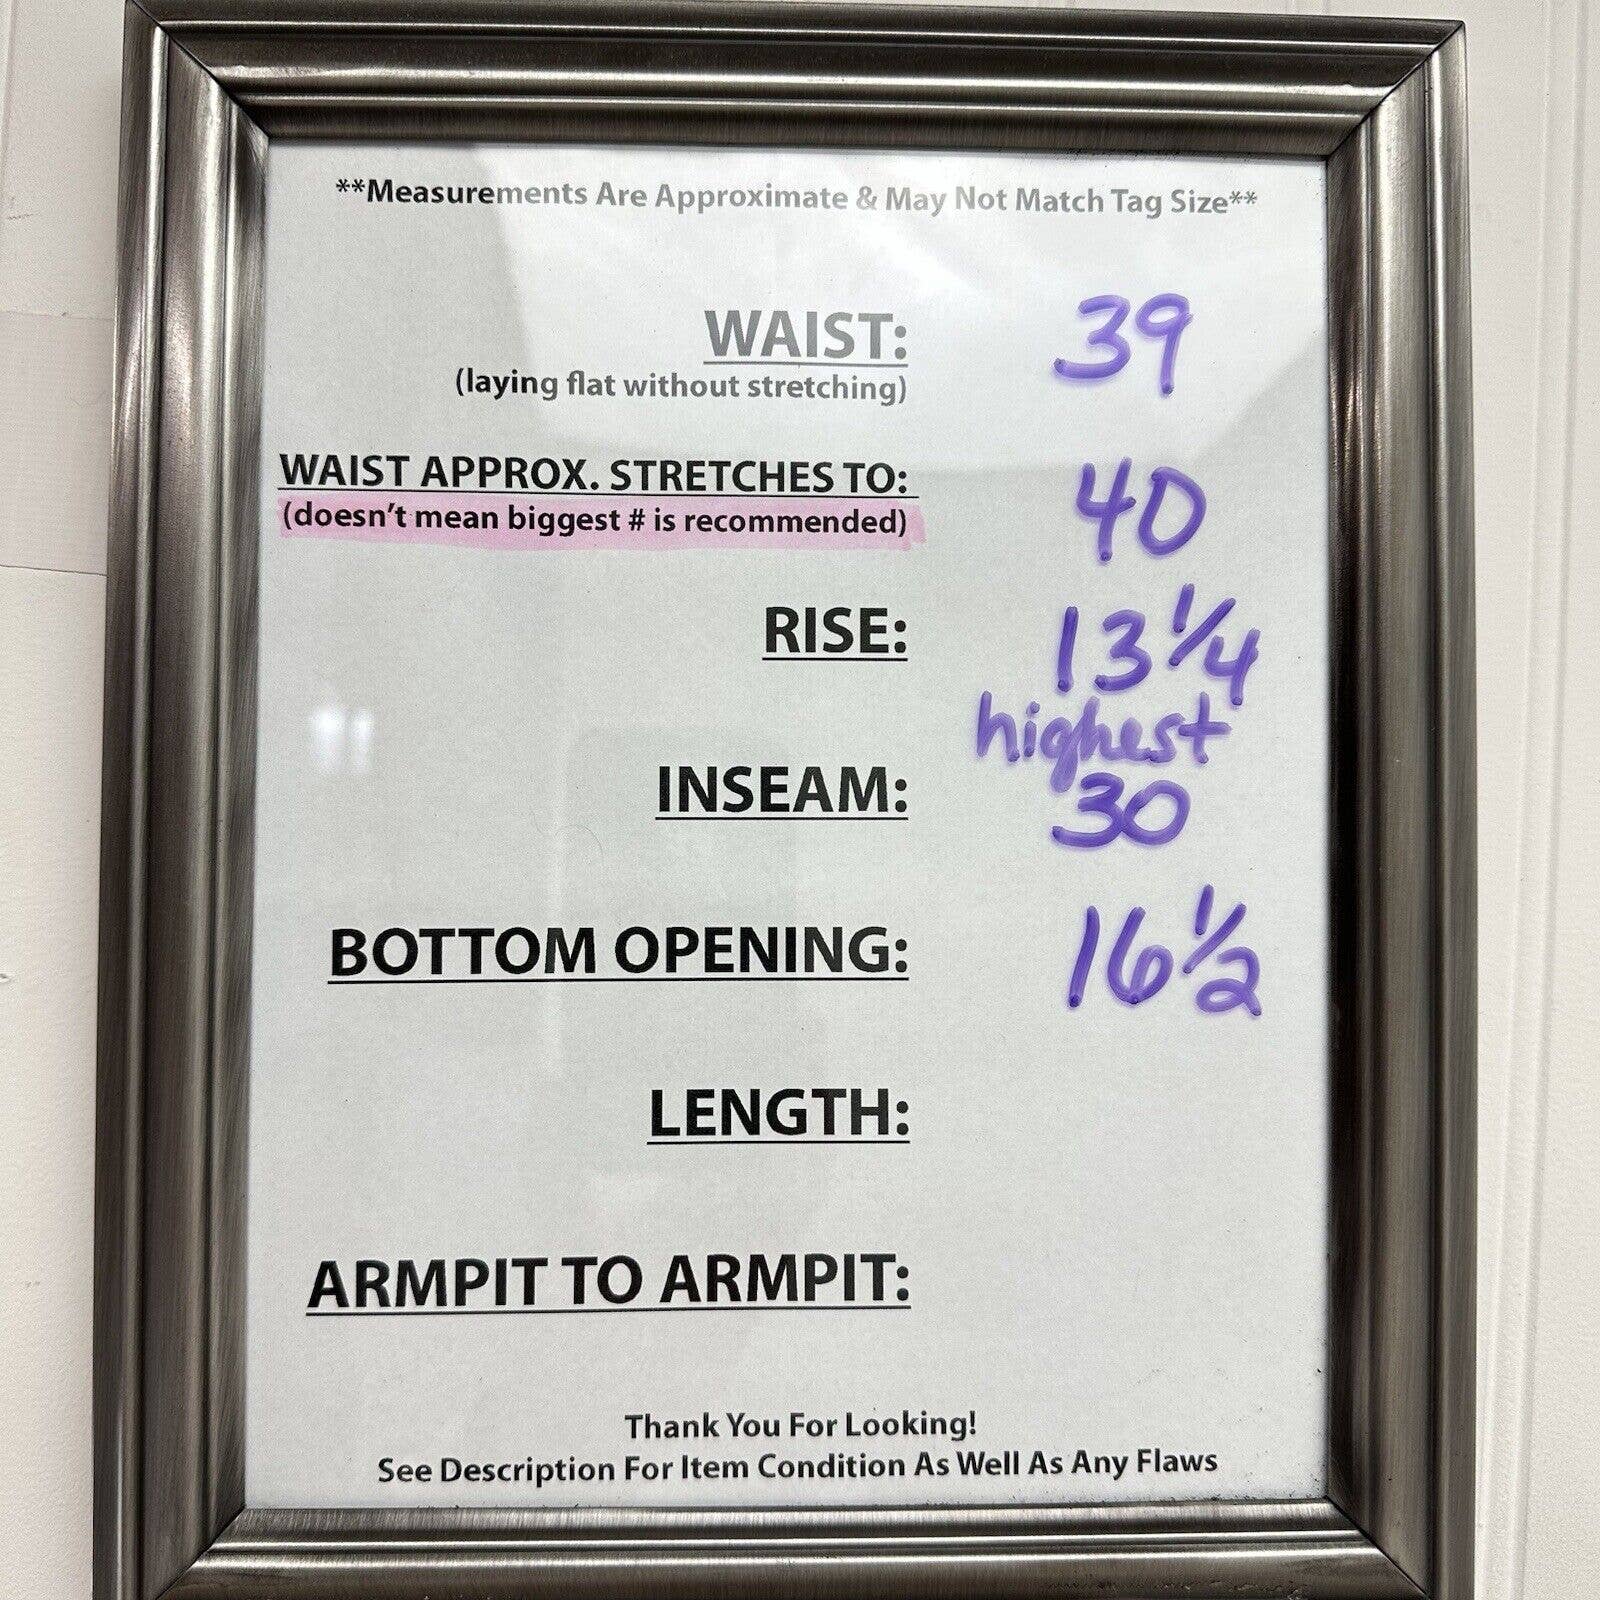 **Measurements Are Approximate & May Not Match Tag Size**
WAIST: 39
(laying flat without stretching)
WAIST APPROX. STRETCHES TO: 40
(doesn't mean biggest # is recommended)
RISE: 13 1/4
highest
INSEAM: 30
BOTTOM OPENING: 16 1/2
LENGTH:
ARMPIT TO ARMPIT:
Thank You For Looking!
See Description For Item Condition As Well As Any Flaws